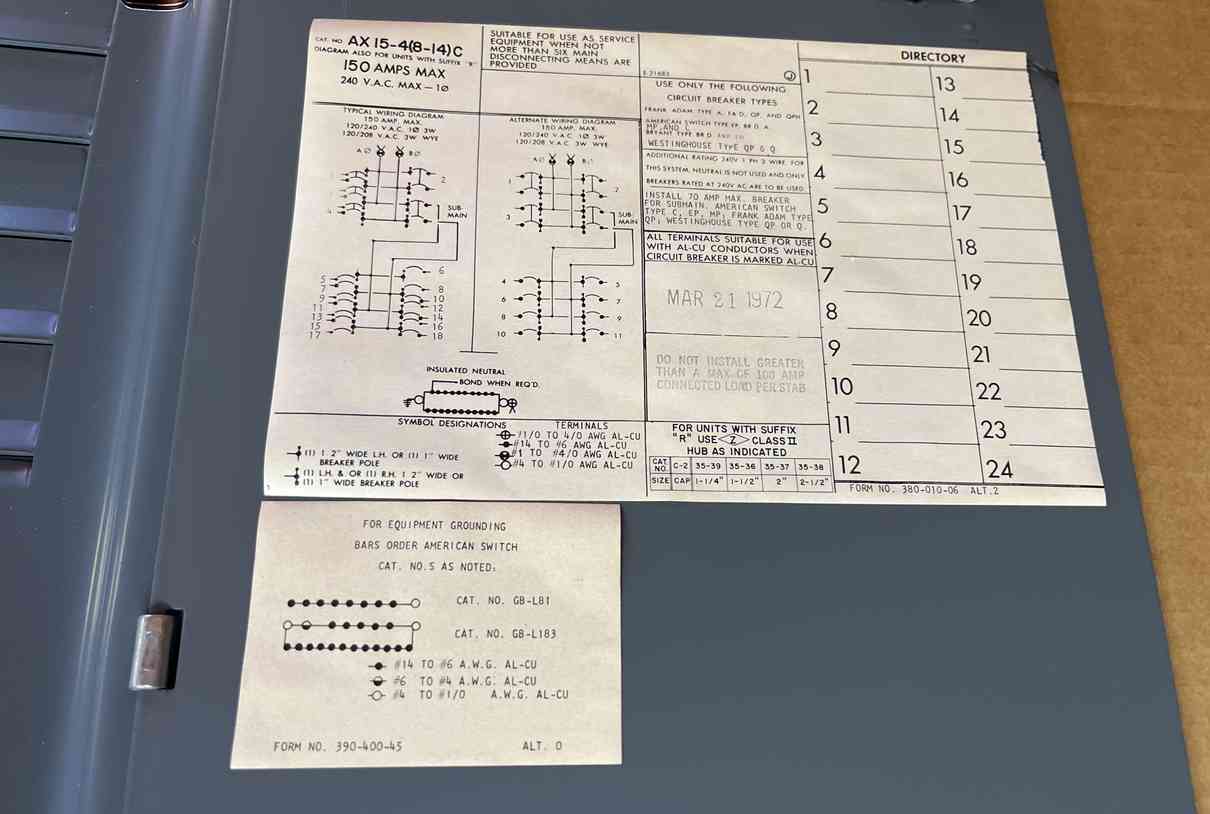 CAT. NO AX 15-4(8-14)C
DIAGRAM ALSO FOR UNITS WITH SUFFIX "R"
150 AMPS MAX
240 V.A.C. MAX-1Ø
SUITABLE FOR USE AS SERVICE
EQUIPMENT WHEN NOT
MORE THAN SIX MAIN
DISCONNECTING MEANS ARE
PROVIDED
TYPICAL WIRING DIAGRAM
150 AMP. MAX.
120/240 V.A.C. 1Ø 3W
120/208 V.A.C. 3W WYE
AØ BØ
2
4
SUB
MAIN
5
6
7
8
9
10
11
12
13
14
15
16
17
18
ALTERNATE WIRING DIAGRAM
150 AMP. MAX.
120/240 V.A.C. 1Ø 3W
120/208 V.A.C. 3W WYE
AØ BØ
1
2
3
SUB
MAIN
4
5
6
7
8
9
10
11
INSULATED NEUTRAL
BOND WHEN REQ'D.
SYMBOL DESIGNATIONS
(1) 1 2" WIDE L.H. OR (1) 1" WIDE
BREAKER POLE
(1) L.H. & OR (1) R.H. 1 2" WIDE OR
(1) 1" WIDE BREAKER POLE
TERMINALS
#1/0 TO 4/0 AWG AL-CU
#14 TO #6 AWG AL-CU
#1 TO #4/0 AWG AL-CU
#4 TO #1/0 AWG AL-CU
USE ONLY THE FOLLOWING
CIRCUIT BREAKER TYPES
FRANK ADAM TYPE A, FA D, QP, AND QPH
AMERICAN SWITCH TYPE EP, BR D, A
MP, AND C
BRYANT TYPE BR D AND
WESTINGHOUSE TYPE QP & Q
ADDITIONAL RATING 240V 1 PH 2 WIRE. FOR
THIS SYSTEM, NEUTRAL IS NOT USED AND ONLY
BREAKERS RATED AT 240V AC ARE TO BE USED
INSTALL 70 AMP MAX. BREAKER
FOR SUBMAIN. AMERICAN SWITCH
TYPE C, EP, MP; FRANK ADAM TYPE
QP; WESTINGHOUSE TYPE QP OR Q.
ALL TERMINALS SUITABLE FOR USE
WITH AL-CU CONDUCTORS WHEN
CIRCUIT BREAKER IS MARKED AL-CU
MAR 21 1972
DO NOT INSTALL GREATER
THAN A MAX OF 100 AMP
CONNECTED LOAD PER STAB
FOR UNITS WITH SUFFIX
"R" USE Z CLASS II
HUB AS INDICATED
CAT. NO. C-2 35-39 35-36 35-37 35-38
SIZE CAP 1-1/4" 1-1/2" 2" 2-1/2"
DIRECTORY
1
2
3
4
5
6
7
8
9
10
11
12
13
14
15
16
17
18
19
20
21
22
23
24
FORM NO. 380-010-06 ALT.2
FOR EQUIPMENT GROUNDING
BARS ORDER AMERICAN SWITCH
CAT. NO.S AS NOTED:
CAT. NO. GB-L81
CAT. NO. GB-L183
#14 TO #6 A.W.G. AL-CU
#6 TO #4 A.W.G. AL-CU
#4 TO #1/0 A.W.G. AL-CU
FORM NO. 390-400-45 ALT. 0